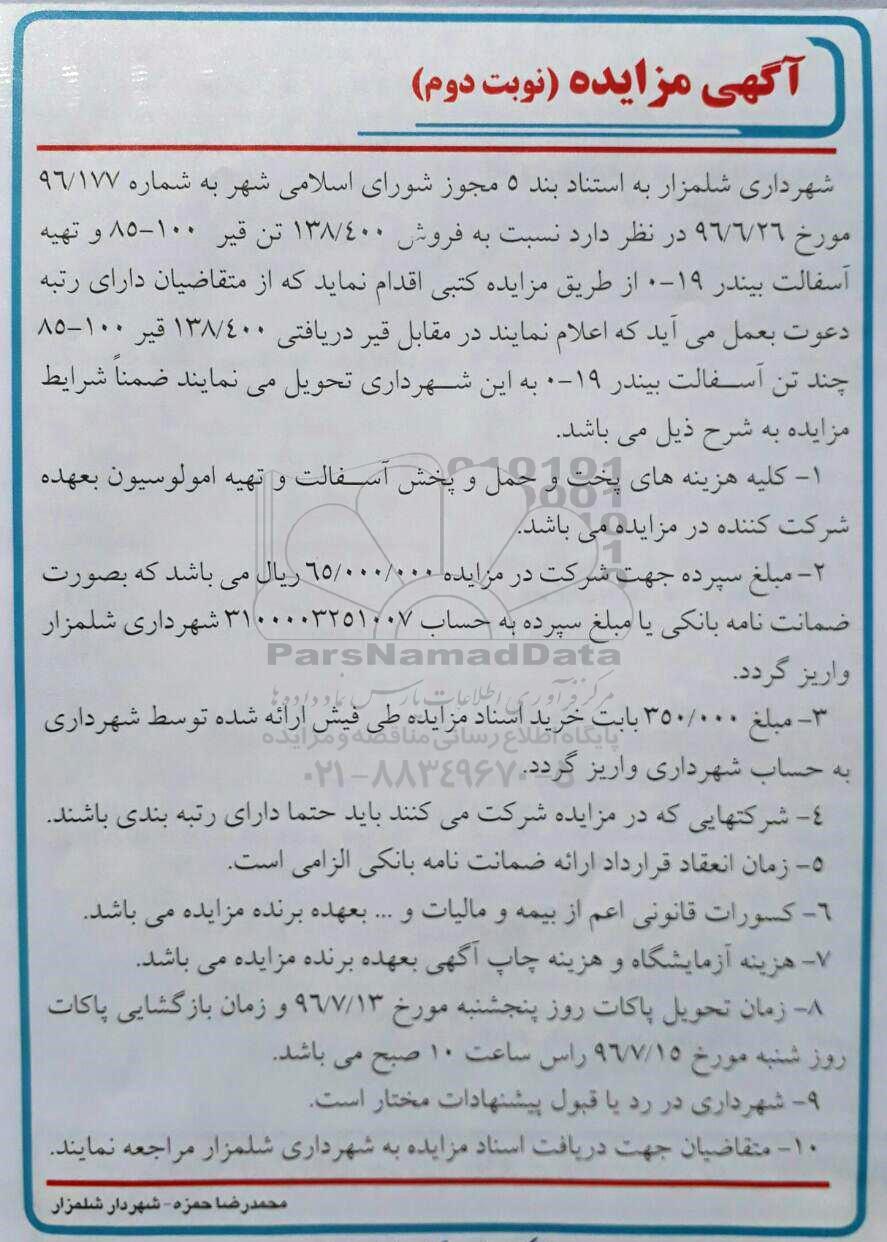 آگهی مزایده (نوبت دوم)
شهرداری شلمزار به استناد بند ٥ مجوز شورای اسلامی شهر به شماره ٩٦/١٧٧
مورخ ٩٦/٦/٢٦ در نظر دارد نسبت به فروش ١٣٨/٤٠٠ تن قیر ١٠٠-٨٥ و تهیه
آسفالت بیندر ١٩-٠ از طریق مزایده کتبی اقدام نماید که از متقاضیان دارای رتبه
دعوت بعمل می آید که اعلام نمایند در مقابل قیر دریافتی ١٣٨/٤٠٠ قیر ١٠٠-٨٥
چند تن آسفالت بیندر ١٩-٠ به این شهرداری تحویل می نمایند ضمناً شرایط
مزایده به شرح ذیل می باشد.
١- کلیه هزینه های پخت و حمل و پخش آسفالت و تهیه امولوسیون بعهده
شرکت کننده در مزایده می باشد.
٢- مبلغ سپرده جهت شرکت در مزایده ٦٥/٠٠٠/٠٠٠ ریال می باشد که بصورت
ضمانت نامه بانکی یا مبلغ سپرده به حساب ٣١٠٠٠٠٣٢٥١٠٠٧ شهرداری شلمزار
واریز گردد.
ParsNamadData
مرکز فرآوری اطلاعات پارس نماد داده ها
٣- مبلغ ٣٥٠/٠٠٠ بابت خرید اسناد مزایده طی فیش ارائه شده توسط شهرداری
پایگاه اطلاع رسانی مناقصه و مزایده
به حساب شهرداری واریز گردد.
٠٢١-٨٨٣٤٩٦٧٠-٥
٤- شرکتهایی که در مزایده شرکت می کنند باید حتما دارای رتبه بندی باشند.
٥- زمان انعقاد قرارداد ارائه ضمانت نامه بانکی الزامی است.
٦- کسورات قانونی اعم از بیمه و مالیات و ... بعهده برنده مزایده می باشد.
٧- هزینه آزمایشگاه و هزینه چاپ آگهی بعهده برنده مزایده می باشد.
٨- زمان تحویل پاکات روز پنجشنبه مورخ ٩٦/٧/١٣ و زمان بازگشایی پاکات
روز شنبه مورخ ٩٦/٧/١٥ راس ساعت ١٠ صبح می باشد.
٩- شهرداری در رد یا قبول پیشنهادات مختار است.
١٠- متقاضیان جهت دریافت اسناد مزایده به شهرداری شلمزار مراجعه نمایند.
محمدرضا حمزه - شهردار شلمزار